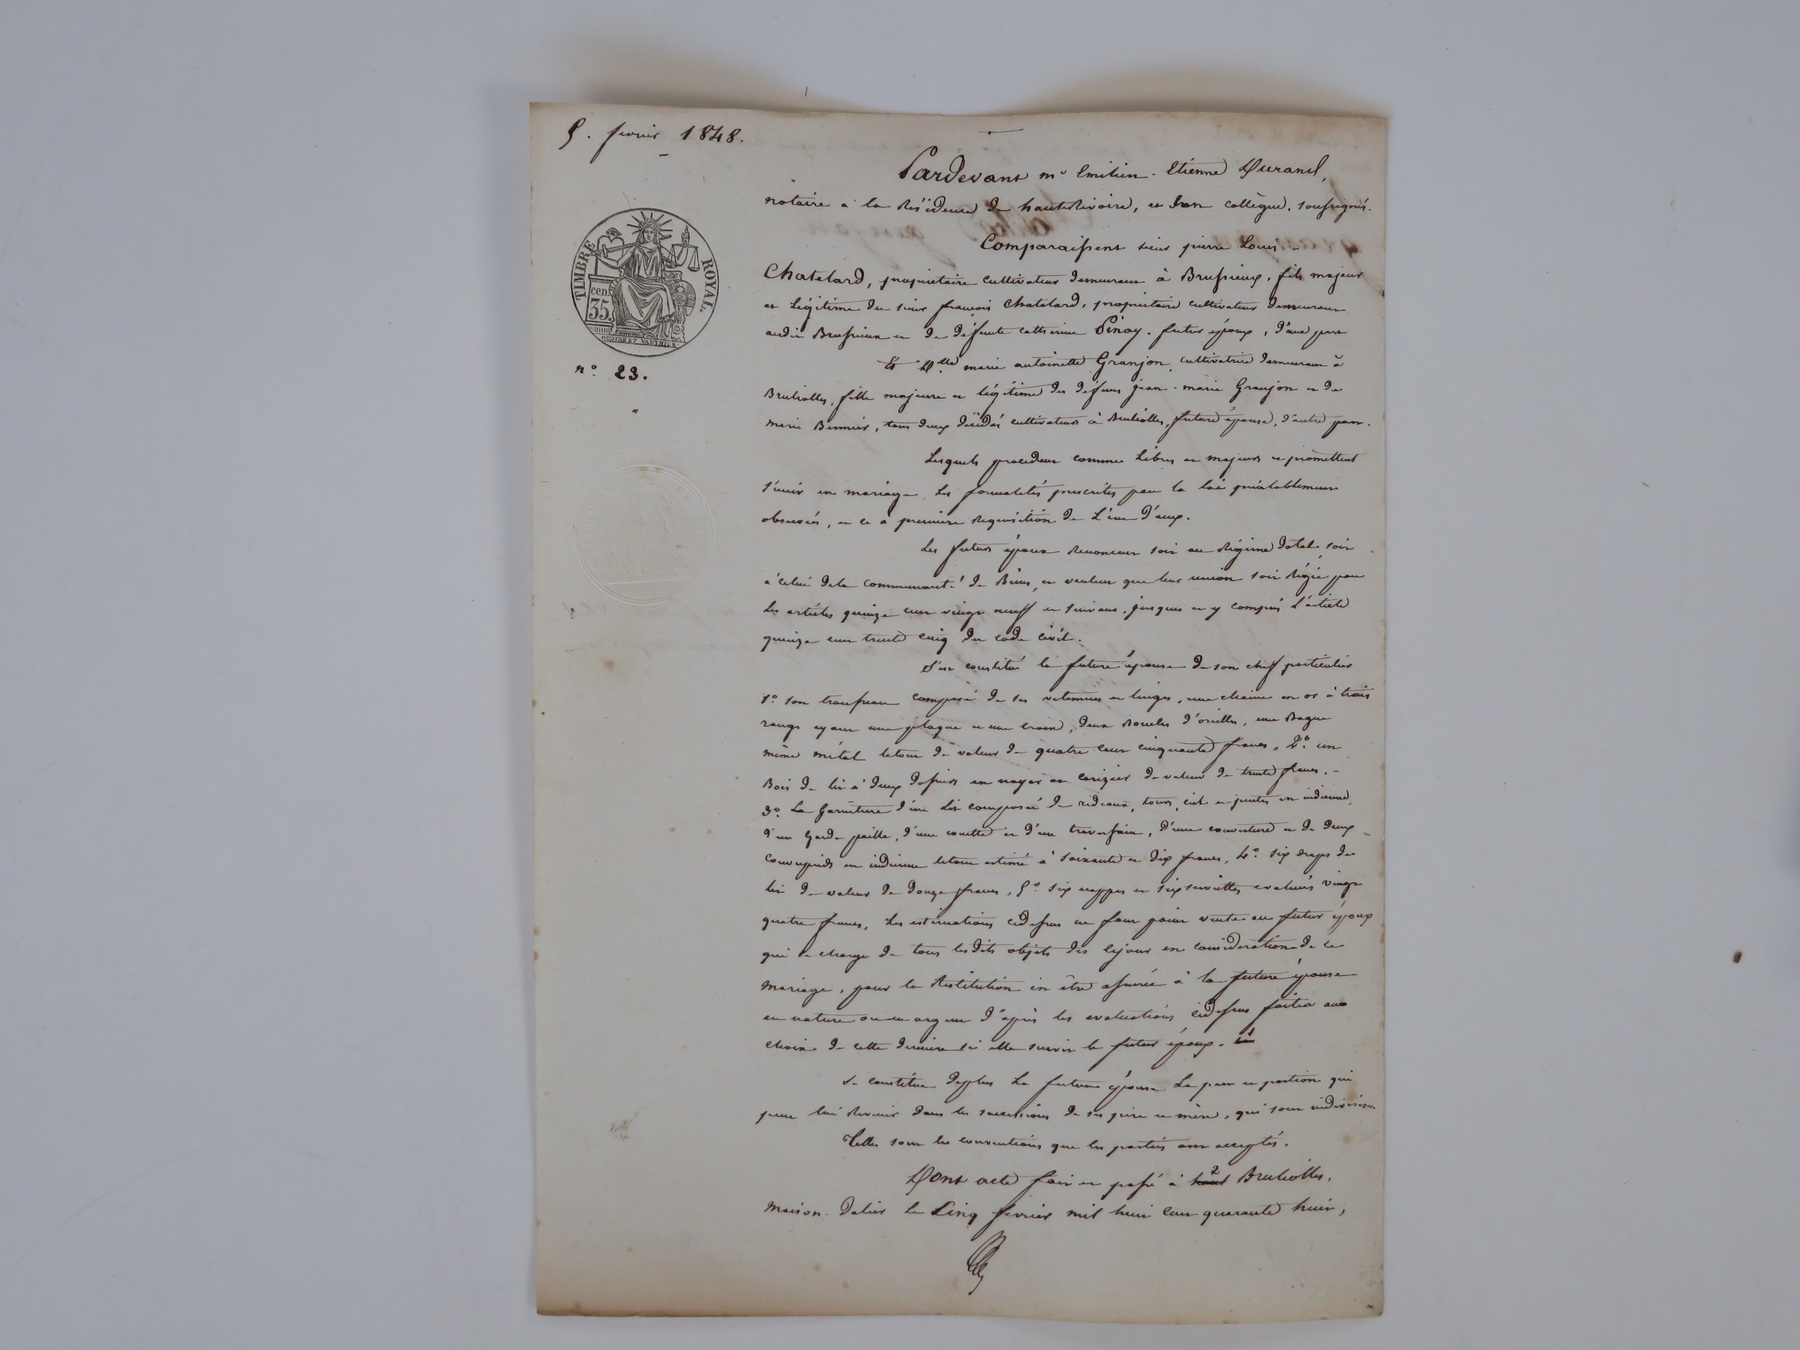 5. fevrier 1848.
Pardevant me Emilien-Etienne Durand,
notaire a la Résidence de hauteRivoire, et son collègue, soussignés.
TIMBRE ROYAL.
cen. 35.
Comparaissent sieur pierre Louis
Chatelard, propriétaire cultivateur demeurant à Brussieux, fils majeur
et légitime du sieur françois Chatelard, propriétaire cultivateur demeurant
audit Brussieux et de défunte catherine Pinay. futur époux, d'une part
n° 23.
Et Dlle marie antoinette Granjon, cultivatrice demeurant à
Bruliolles, fille majeure et légitime des défunts jean-marie Granjon et de
marie, tous deux décédés cultivateurs à Brulliolles, future épouse, d'autre part.
Lesquels procédant comme libres et majeurs se promettent
s'unir en mariage, les formalités prescrites par la loi préalablement
observées, et ce à première Requisition de L'un d'eux.
Les futurs époux Renoncent soit au Régime dotal, soit
à celui dela communauté de Biens, et veulent que leur union soit Régie par
les articles quinze cent vingt neuff et suivans, jusques et y compris L'article
quinze cent trente cinq du code civil.
S'est constitué la future épouse de son cheff particulier
1° son trousseau composé de ses vetemens et linges, une chaine en or à trois
rangs ayant une plaque et une croix, deux Boucles d'oreilles, une Bague
même métal letout de valeur de quatre cent cinquante francs, 2° un
Bois de lit à deux dossiers en noyer et cerizier de valeur de trente francs,
3° La Garniture d'un Lit composée de rideaux, tours, ciel et pentes en indienne,
d'un Garde paille, d'une couette et d'un traversain, d'une couverture et de deux
couvrepieds en indienne letout estimé à soixante et dix francs, 4° six draps de
lit de valeur de douze francs, 5° six nappes et six serviettes evalués vingt
quatre francs, Les estimations cidessus ne font point vente au futur époux
qui se charge de tous lesdits objets dès cejour en considération de ce
mariage, pour la Restitution en être assurée à la future épouse
en nature ou en argent d'après les evaluations cidessus faites au
choix de cette dernière si elle survit le futur époux.
Se constitue deplus La future épouse La part et portion qui
peut lui Revenir dans les successions de ses père et mère, qui sont indivises
Telles sont les conventions que les parties ont acceptés.
Dont acte fait et passé à haut Brulliolles,
maison Dalin le Cinq fevrier mil huit cent quarante huit,